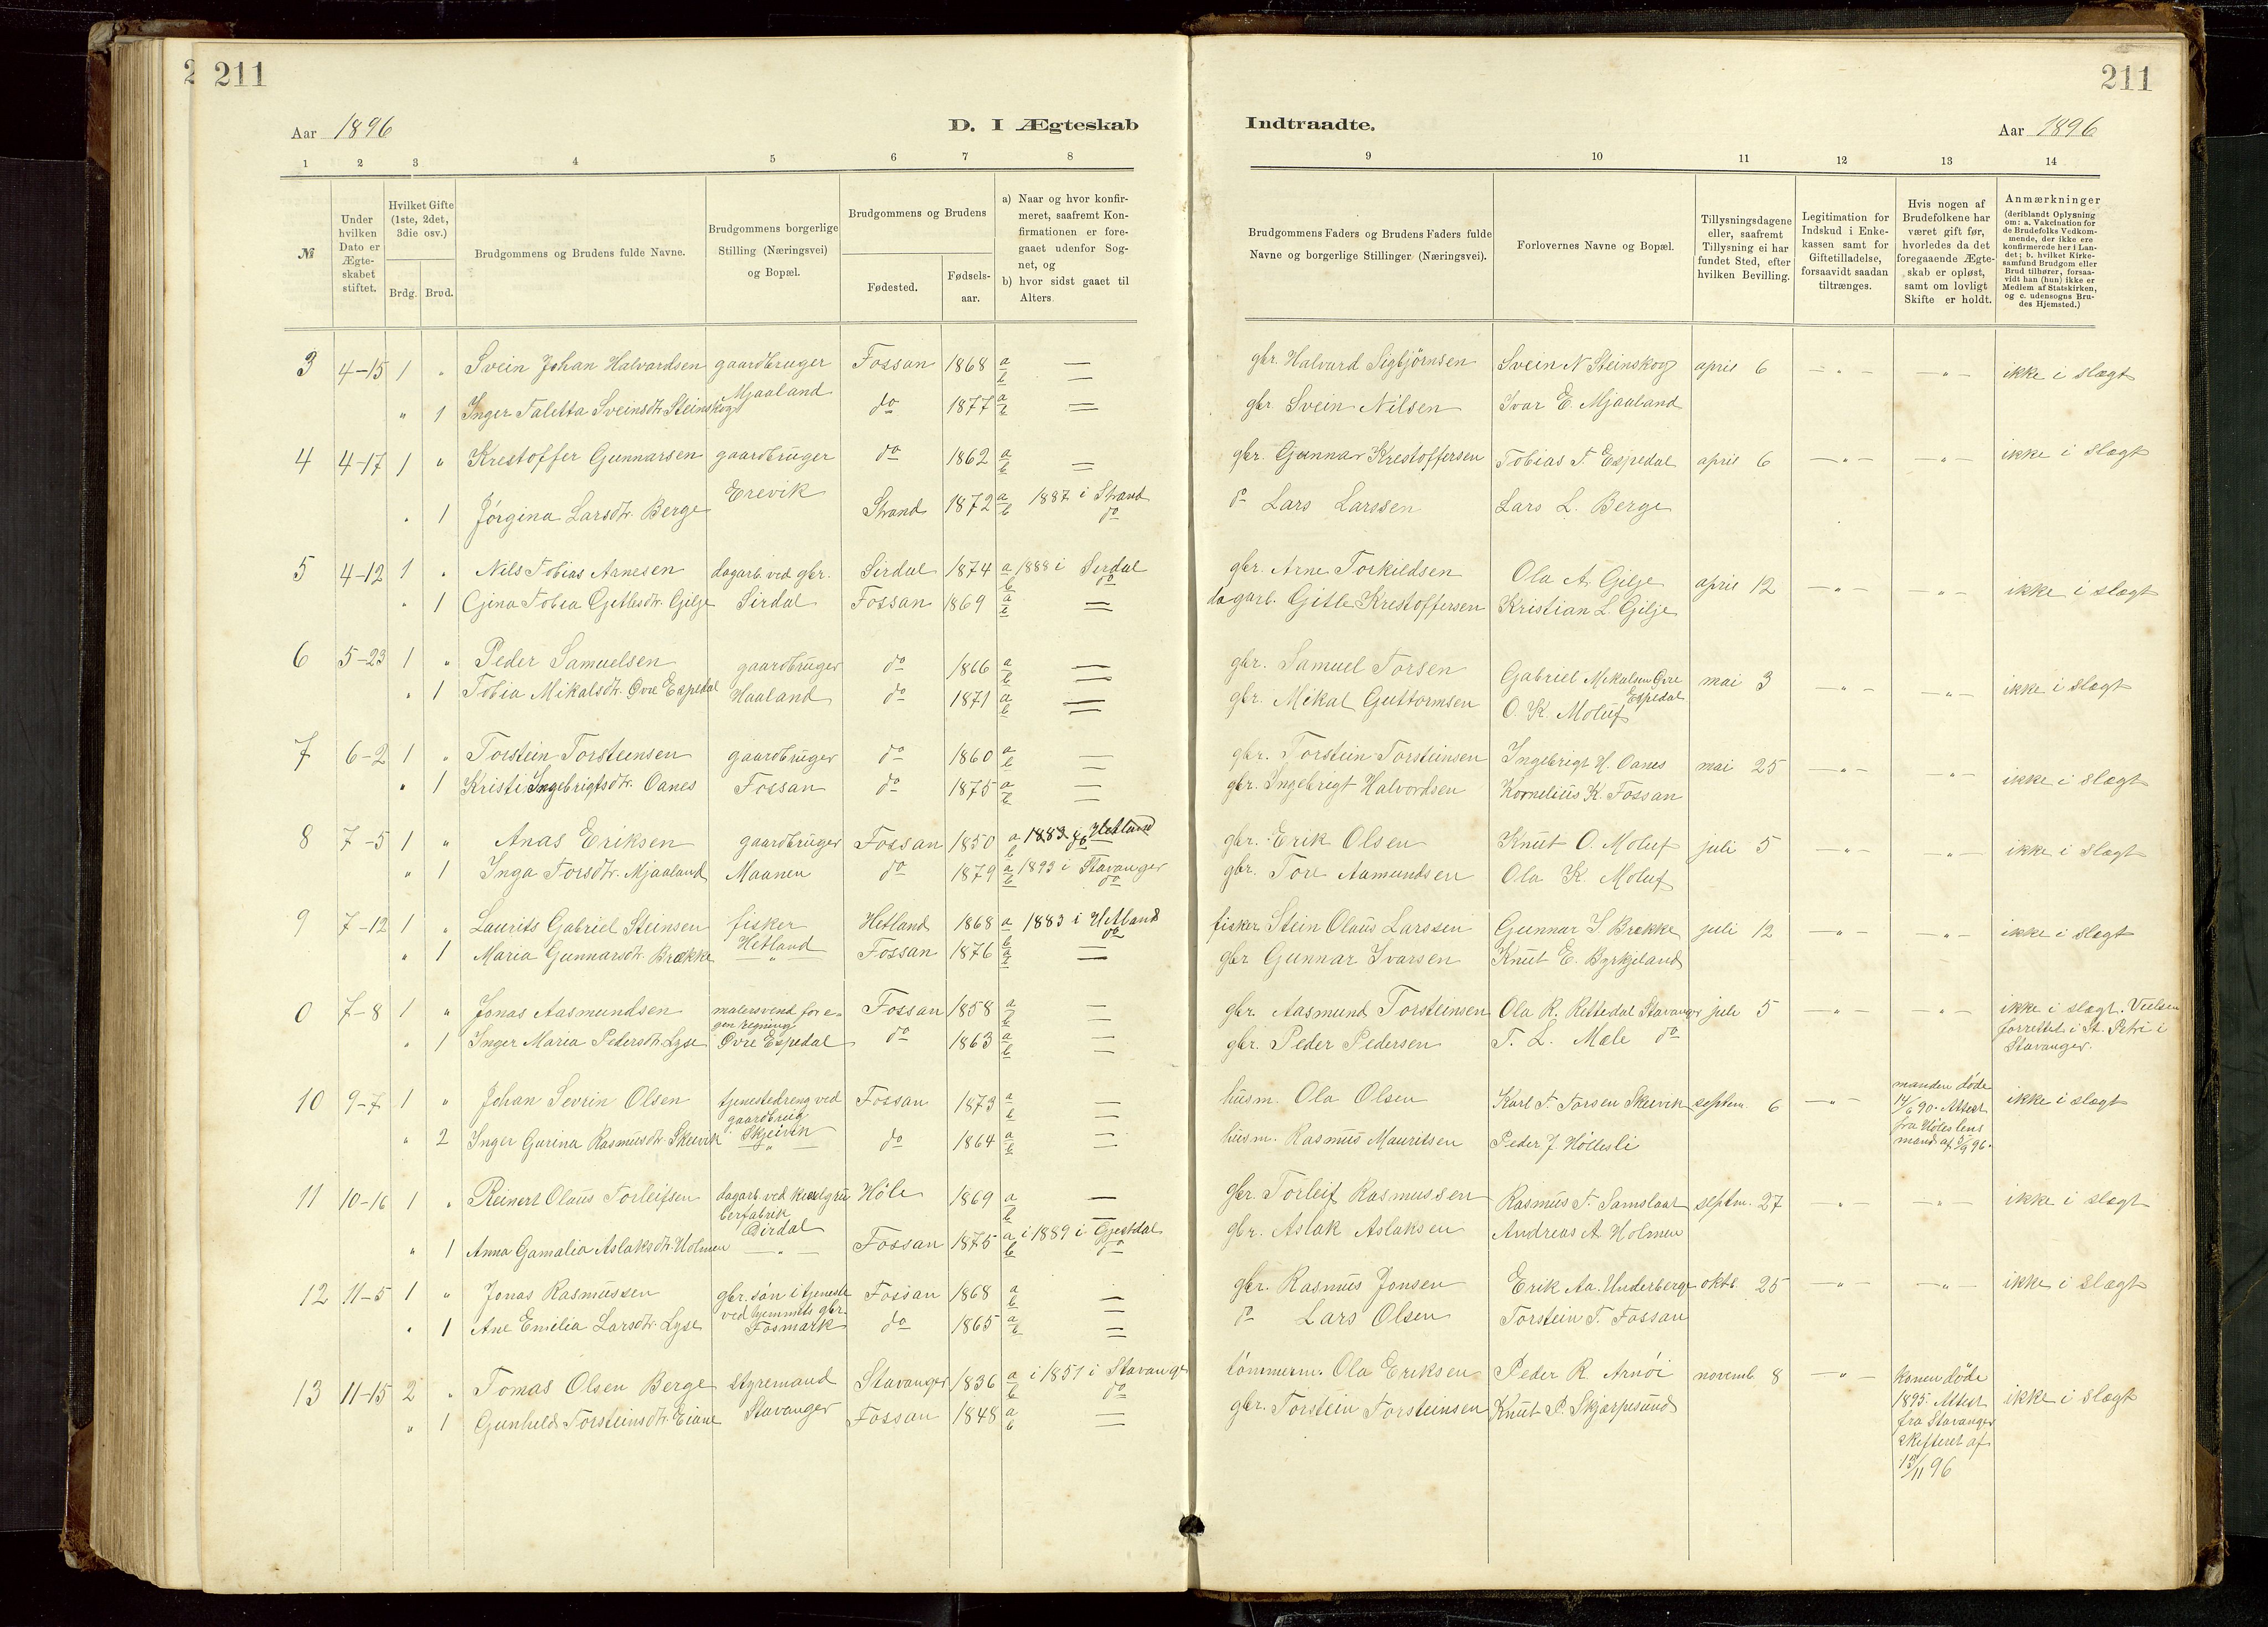 211
211
Aar 1896
D. I Ægteskab
Indtraadte.
Aar 1896
1 2 3 4 5 6 7 8 9 10 11 12 13 14
№
Under hvilken Dato er Ægteskabet stiftet.
Hvilket Gifte (1ste, 2det, 3die osv.)
Brdg. Brud.
Brudgommens og Brudens fulde Navne.
Brudgommens borgerlige Stilling (Næringsvei) og Bopæl.
Brudgommens og Brudens
Fødested.
Fødselsaar.
a) Naar og hvor konfirmeret, saafremt Konfirmationen er foregaaet udenfor Sognet, og
b) hvor sidst gaaet til Alters.
Brudgommens Faders og Brudens Faders fulde Navne og borgerlige Stillinger (Næringsvei).
Forlovernes Navne og Bopæl.
Tillysningsdagene eller, saafremt Tillysning ei har fundet Sted, efter hvilken Bevilling.
Legitimation for Indskud i Enkekassen samt for Giftetilladelse, forsaavidt saadan tiltrænges.
Hvis nogen af Brudefolkene har været gift før, hvorledes da det foregaaende Ægteskab er opløst, samt om lovligt Skifte er holdt.
Anmærkninger (deriblandt Oplysning om: a. Vakcination for de Brudefolks Vedkommende, der ikke ere konfirmerede her i Landet; b. hvilket Kirkesamfund Brudgom eller Brud tilhører, forsaavidt han (hun) ikke er Medlem af Statskirken, og c. udensogns Brudes Hjemsted.)
3 4-15 1 " Svein Johan Halvardsen gaardbruger Fossan 1868 a b — gbr. Halvard Sigbjørnsen Svein N Steinskog april 6 —"— —"— ikke i slægt
" 1 Inger Taletta Sveinsdtr. Steinskog Mjaaland do 1877 a b — gbr Svein Nilsen Ivar E. Mjaaland
4 4-17 1 " Krestoffer Gunnarsen gaardbruger do 1862 a b — gbr. Gunnar Krestoffersen Tobias T. Espedal april 6 —"— —"— ikke i slægt
" 1 Jørgina Larsdtr. Berge Erevik Strand 1872 a b 1887 i Strand do do Lars Larssen Lars L. Berge
5 4-12 1 " Nils Tobias Arnesen dagarb. ved gbr. Sirdal 1874 a b 1888 i Sirdal do gbr. Arne Torkildsen Ola A. Gilje april 12 —"— —"— ikke i slægt
" 1 Gjina Tobea Gitlesdtr. Gilje Sirdal Fossan 1869 a b — dagarb. Gitle Krestoffersen Kristian L Gilje
6 5-23 1 " Peder Samuelsen gaardbruger do 1866 a b — gbr. Samuel Torsen Gabriel Mikalsen Øvre Espedal mai 3 —"— —"— ikke i slægt
" 1 Tobia Mikalsdtr. Øvre Espedal Haaland do 1871 a b — gbr. Mikal Guttormsen O. K. Moluf
7 6-2 1 " Torstein Torsteinsen gaardbruger do 1860 a b — gbr. Torstein Torsteinsen Ingebrigt H. Oanes mai 25 —"— —"— ikke i slægt
" 1 Kristi Ingebrigtsdtr. Oanes Fossan do 1875 a b — gbr. Ingebrigt Halvordsen Kornelius K. Fossan
8 7-5 1 " Anas Eriksen gaardbruger Fossan 1850 a b 1883 i Hetland do gbr. Erik Olsen Knut O. Moluf juli 5 —"— —"— ikke i slægt
" 1 Inga Torsdtr. Mjaaland Maanen do 1879 a b 1893 i Stavanger do gbr. Tore Aamundsen Ola K. Moluf
9 7-12 1 " Laurits Gabriel Steinsen fisker Hetland 1868 a b 1883 i Hetland do fisker Stein Olaus Larssen Gunnar I Brekke juli 12 —"— —"— ikke i slægt
" 1 Maria Gunnarsdtr. Brække Hetland —"— Fossan 1876 a b — gbr Gunnar Ivarsen Knut E. Byrkjeland
0 7-8 1 " Jonas Aasmundsen malersvend for egen regning Fossan 1858 a b — gbr. Aasmund Torsteinsen Ola R. Rettedal Stavanger juli 5 —"— —"— ikke i slægt. Vielsen forrettet i St. Petri i Stavanger.
" 1 Inger Maria Pedersdtr. Lyse Øvre Espedal do 1863 a b — gbr. Peder Pedersen T. L. Mæle do
10 9-7 1 " Johan Sevrin Olsen tjenestedreng ved gaardbrug Fossan 1873 a b — husm. Ola Olsen Karl T. Torsen Skeivik septem. 6 —"— manden døde 14/6 90. Attest fra Høles lensmand af 5/9 96. ikke i slægt
" 2 Inger Gurina Rasmusdtr. Skeivik Skjeivik —"— do 1864 a b — husm. Rasmus Mauritsen Peder J. Høllesli
11 10-16 1 " Reinert Olaus Torleifsen dagarb. ved berfabrik Høle 1869 a b — gbr. Torleif Rasmussen Rasmus T. Samslaat septm. 27 —"— —"— ikke i slægt
" 1 Anna Gamalia Aslaksdtr. Holmen Dirdal —"— Fossan 1875 a b i 1889 i Gjestdal do gbr. Aslak Aslaksen Andreas A Holmen
12 11-5 1 " Jonas Rasmussen gbr. søn i tjeneste ved hjemmets gbr. Fossan 1868 a b — gbr. Rasmus Jonsen Erik Aa. Underberge oktb. 25 —"— —"— ikke i slægt
" 1 Ane Emilia Larsdtr. Lyse Fosmark do 1865 a b — do Lars Olsen Torstein T. Fossan
13 11-15 2 " Tomas Olsen Berge styremand Stavanger 1836 a b i 1851 i Stavanger do tømmerm. Ola Eriksen Peder R. Arnøi novemb. 8 —"— Konen døde 1895. Attest fra Stavanger skifteret af 13/11 96 ikke i slægt
" 1 Gunhild Torsteinsdtr. Eiane Stavanger Fossan 1848 a b — gbr. Torstein Torsteinsen Knut P. Skjærpesund